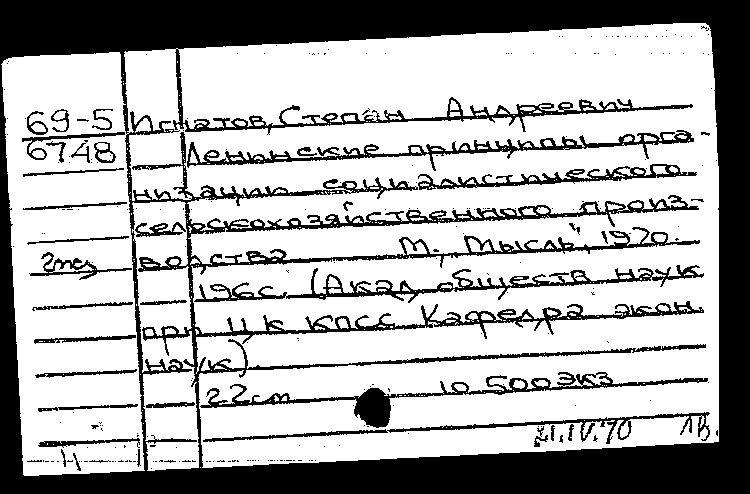 69-5 Игнатов, Степан Андреевич
6748 Ленинские принципы орга-
низации социалистического
сельскохозяйственного произ-
2экз водства М., "Мысль", 1970.
196с. (Акад. обществ наук
при ЦК КПСС Кафедра экон.
наук).
22см 10 500 экз
21.IV.70 1в.
Н